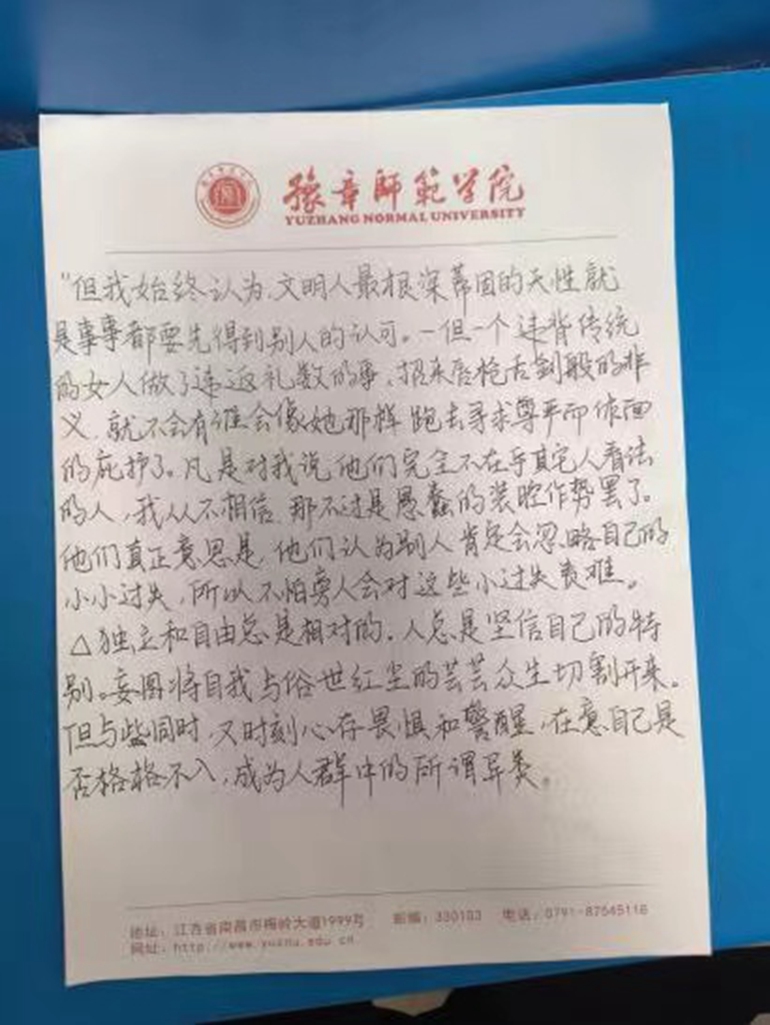 豫章師範学院
YUZHANG NORMAL UNIVERSITY
"但我始终认为,文明人最根深蒂固的天性就
是事事都要先得到别人的认可。一但一个违背传统
的女人做了违返礼数的事、招来唇枪舌剑般的非
义,就不会有谁会像她那样跑去寻求尊严而体面
的庇护了。凡是对我说他们完全不在乎其它人看法
的人,我从不相信,那不过是愚蠢的装腔作势罢了。
他们真正意思是,他们认为别人肯定会忽略自己的
小小过失,所以不怕旁人会对这些小过失责难。
△独立和自由总是相对的,人总是坚信自己的特
别。妄图将自我与俗世红尘的芸芸众生切割开来。
但与些同时,又时刻心存畏惧和警醒,在意自己是
否格格不入,成为人群中的所谓异类。
地址:江西省南昌市梅岭大道1999号 邮编:330103 电话:0791-87645116
网址:http://www.yuznu.edu.cn